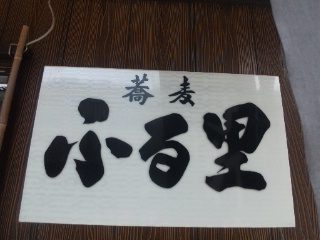 蕎麦
ふる里